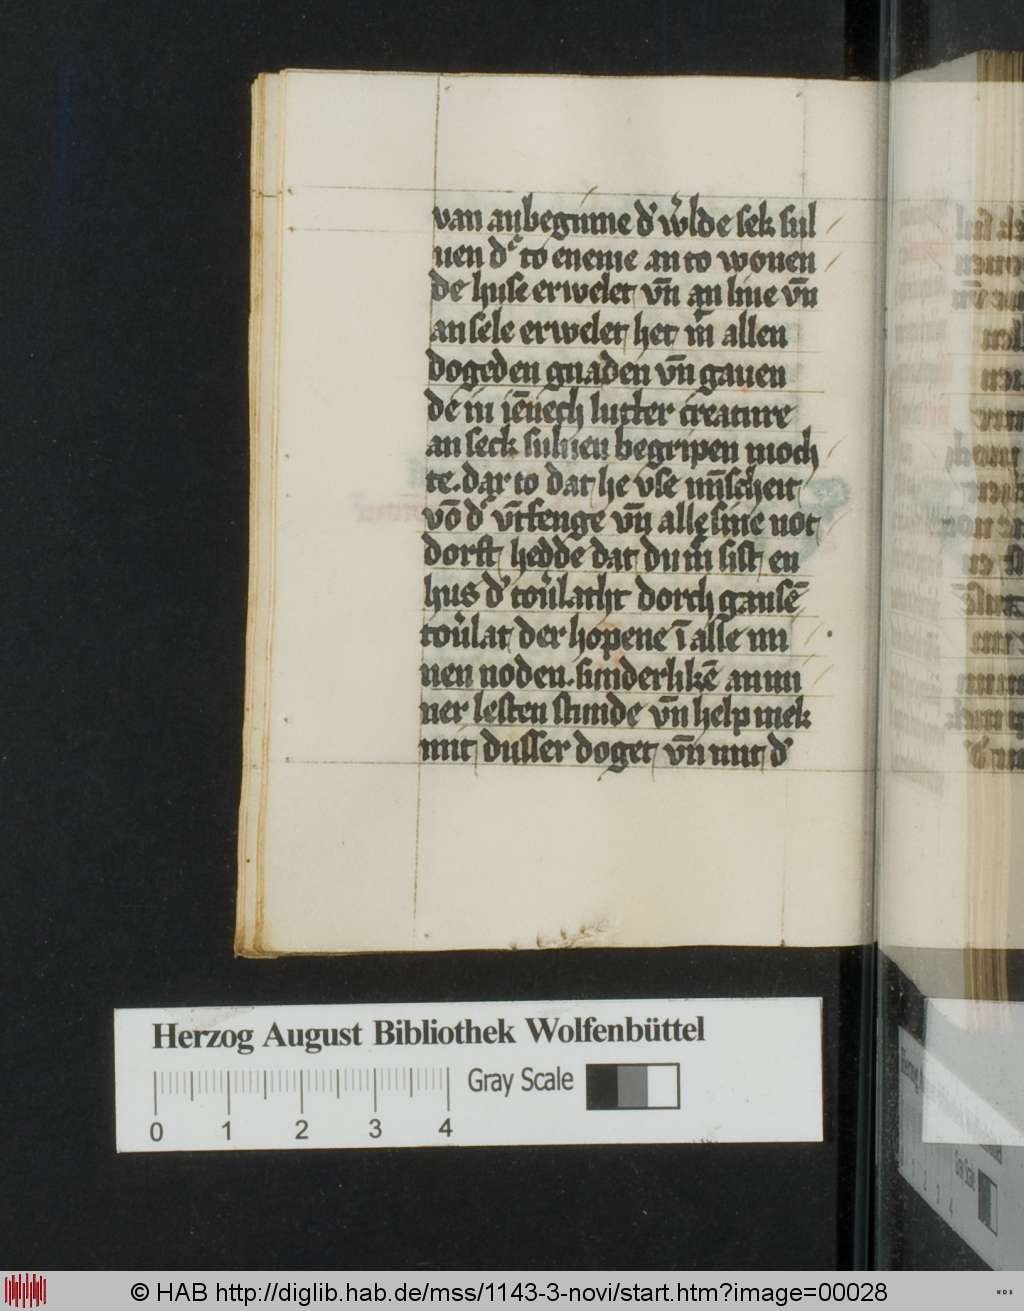 van anbeginne d' w'lde sek sul
uen d' to eneme an to wonen
de huse erwelet vn̄ an liue vn̄
an sele erwelet het in allen
dogeden gnaden vn̄ gauen
de in iēnech lutter creature
an seck suluen begripen moch
te. dar to dat he vse mīscheit
vō d' vntfenge vn̄ alle sine not
dorft hedde dat du m sist en
hus d' tou'lacht dorch gansē
tou'lat der hopene ī alle mi
nen noden. sunderlikē an mi
ner lesten stunde vn̄ help mek
mit dusser doget vn̄ mit d'
Herzog August Bibliothek Wolfenbüttel
Gray Scale
0 1 2 3 4
© HAB http://diglib.hab.de/mss/1143-3-novi/start.htm?image=00028